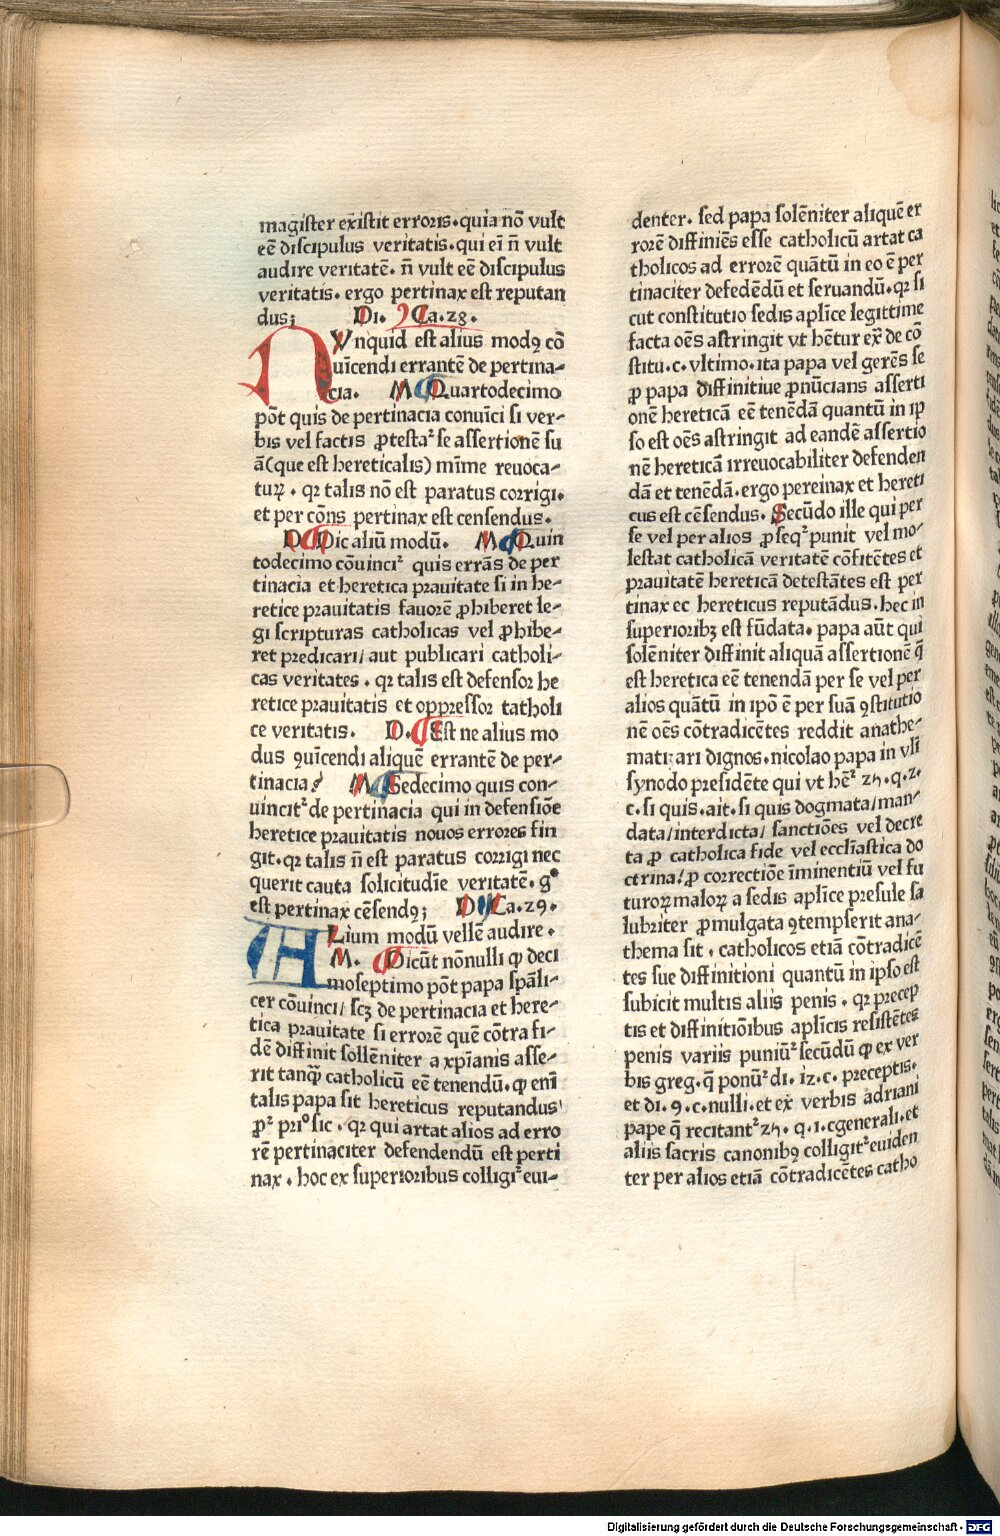 magister existit erroris.quia nō vult
eē discipulus veritatis.qui ei n̄ vult
audire veritatē. n̄ vult eē discipulus
veritatis. ergo pertinax est reputan
dus; Di. Ca.28.
NVnquid est alius modꝯ cō
uīcendi errantē de pertina-
cia. M Quartodecimo
pōt quis de pertinacia conuīci si ver-
bis vel factis ꝓtestaᷣ se assertionē su
ā(que est hereticalis) mīme reuoca-
tuꝝ . qꝛ talis nō est paratus corrigi.
et per cōns pertinax est censendus.
D Dic aliū modū. M Quin
todecimo cōuinciᷣ quis errās de per
tinacia et heretica prauitate si in he-
retice prauitatis fauorē ꝓhiberet le-
gi scripturas catholicas vel ꝓhibe-
ret predicari/ aut publicari catholi-
cas veritates . qꝛ talis est defensor he
retice prauitatis et oppressor tatholi
ce veritatis. D. Est ne alius mo
dus ꝯuīcendi aliquē errantē de per-
tinacia? M Sedecimo quis con-
uincitᷣ de pertinacia qui in defensiōe
heretice prauitatis nouos errores fin
git.qꝛ talis n̄ est paratus corrigi nec
querit cauta solicitudīe veritatē. gº
est pertinax cēsendꝯ; D Ca.29.
ALium modū vellē audire .
M. Dicūt nōnulli ꝙ deci
moseptimo pōt papa spāli-
cer cōuinci/ scꝫ de pertinacia et here-
tica prauitate si errorē quē cōtra fi-
dē diffinit sollēniter a xp̄ianis asse-
rit tanqᷓ catholicū eē tenendū. ꝙ enī
talis papa sit hereticus reputandus
ꝓᷣ priº sic . qꝛ qui artat alios ad erro
rē pertinaciter defendendū est perti
nax . hoc ex superioribus colligiᷣ eui-
denter. sed papa solēniter aliquē er
rorē diffiniēs esse catholicū artat ca
tholicos ad errorē quātū in eo ē per
tinaciter defedēdū et seruandū.qꝛ si
cut constitutio sedis aplīce legittime
facta oēs astringit vt hētur ex̄ de cō
stitu.c.vltimo.ita papa vel gerēs se
ꝓ papa diffinitiue ꝓnūcians asserti
onē hereticā eē tenēdā quantū in ip
so est oēs astringit ad eandē assertio
nē hereticā irreuocabiliter defenden
dā et tenēdā.ergo pereinax et hereti
cus est cēsendus. Secūdo ille qui per
se vel per alios ꝓseqᷣ punit vel mo-
lestat catholicā veritatē cōfitētes et
prauitatē hereticā detestātes est per
tinax ec hereticus reputādus.hec in
superioribꝫ est fūdata. papa aūt qui
solēniter diffinit aliquā assertionē q̄
est heretica eē tenendā per se vel per
alios quātū in ip̄o ē per suā ꝯstitutio
nē oēs cōtradicētes reddit anathe-
matizari dignos.nicolao papa in vlī
synodo presidēte qui vt hēᷣ 25.q.2.
c.si quis.ait.si quis dogmata/man-
data/interdicta/ sanctiōes vel decre
ta ꝓ catholica fide vel ecclīastica do
ctrina/ꝓ correctiōe īminentiū vel fu
turoꝝ maloꝝ a sedis aplīce presule sa
lubriter ꝓmulgata ꝯtempserit ana-
thema sit . catholicos etiā cōtradicē
tes sue diffinitioni quantū in ipso est
subicit multis aliis penis . qꝛ precep
tis et diffinitiōibus aplīcis resistētes
penis variis puniūᷣ secūdū ꝙ ex ver
bis greg.q̄ ponūᷣ di. 12.c. preceptis.
et di. 9.c.nulli.et ex verbis adriani
pape q̄ recitantᷣ 25. q.1.cgenerali.et
aliis sacris canonibꝯ colligitᷣ euiden
ter per alios etiā cōtradicētes catho
Digitalisierung gefördert durch die Deutsche Forschungsgemeinschaft - DFG